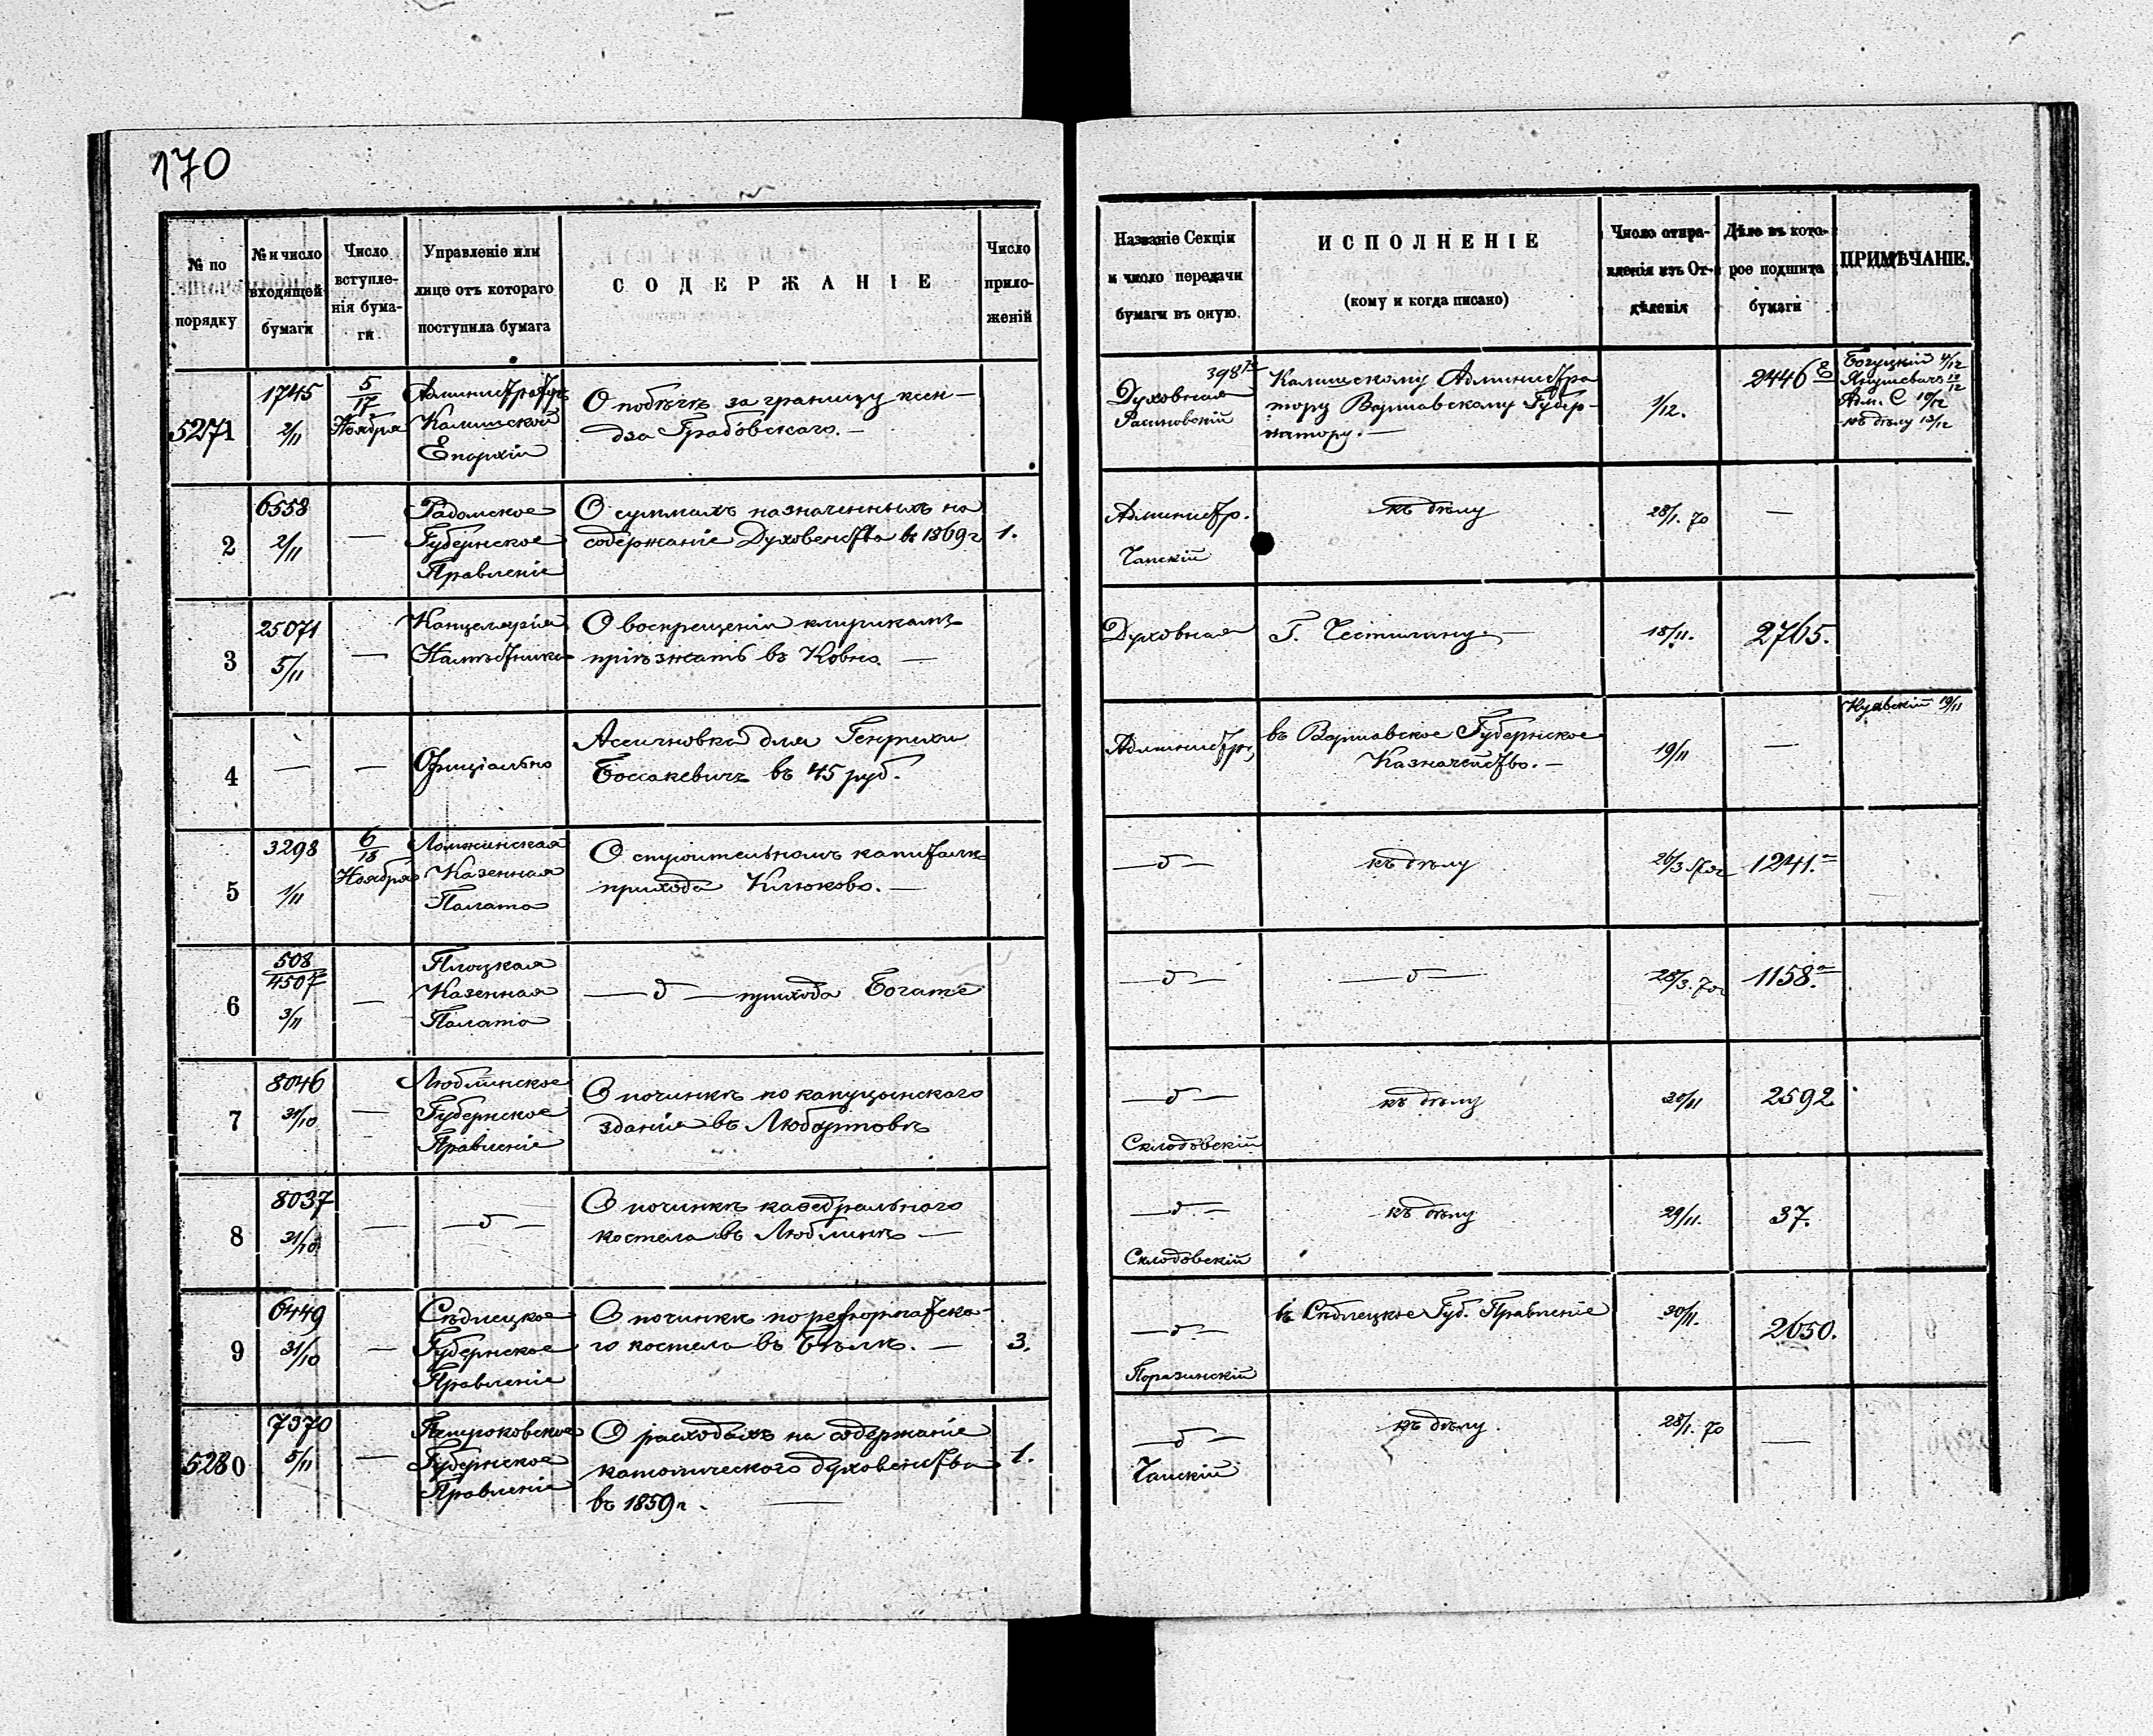 170
№ по порядку
№ и число входящей бумаги
Число вступле- нія бума- ги.
Управленіе или лице отъ котораго поступила бумага
СОДЕРЖАНІЕ
Число прило- женій
Названіе Секціи и число передачи бумаги въ оную.
ИСПОЛНЕНІЕ
(кому и когда писано)
Число отпра- вленія изъ От- дѣленія
Дѣло въ кото- рое подшита бумаги
ПРИМѢЧАНІЕ.
5271
1745
2/11
5/17
Ноября
Администраторъ
Калишской
Епархіи
О побѣгѣ за границу ксен-
дза Грабовскаго. —
398
Духовная
Калишскому Администра
тору Варшавскому Губер-
натору. —
1/12.
2446
Богуцкій 4/12
Янушевичъ
Адм. С 10/12
къ дѣлу 13/12
2
6558
2/11
—
Радомское
Губернское
Правленіе
О суммахъ назначенныхъ на
содержаніе Духовенства въ 1869 г
1.
Администр.
Чапскій
къ дѣлу
28/1. 70
—
3
25071
5/11
—
Канцелярія
Намѣстника
О воспрещеніи клирикамъ
пріѣзжать въ Ковно. —
Духовная
Г.
18/11.
2765.
4
—
—
Офиціально
Ассигновка для Генриха
Боссакевичъ въ 45 руб.
Администр,
въ Варшавское Губернское
Казначейство. —
19/11
—
Куявскій 19/11
5
3298
1/11
6/18
Ноября
Ломжинская
Казенная
Палата
О строительномъ капиталѣ
прихода Клюково. —
— д —
къ дѣлу
26/3
1241.
6
508
4507
3/11
—
Плоцкая
Казенная
Палата
— д — прихода Богате
— д —
— д —
28/3. 70г
1158.
7
8046
31/10
—
Люблинское
Губернское
Правленіе
О починкѣ по капуцынскаго
зданія въ Любартовѣ
— д —
Склодовскій
къ дѣлу
30/11
2592
8
8037
31/10
—
— д —
О починкѣ каѳедральнаго
костела въ Люблинѣ —
— д —
Склодовскій
къ дѣлу
29/11.
37.
9
6449
31/10
—
Сѣдлецкое
Губернское
Правленіе
О починкѣ по реформатска-
го костела въ Бѣлѣ. —
3.
— д —
Поразинскій
въ Сѣдлецкое Губ. Правленіе
30/11.
2650.
5280
7370
5/11
—
Петроковское
Губернское
Правленіе
О расходахъ на содержаніе
католическаго духовенства
въ 1859 г. —
1.
— д —
Чапскій
къ дѣлу.
28/1. 70
—